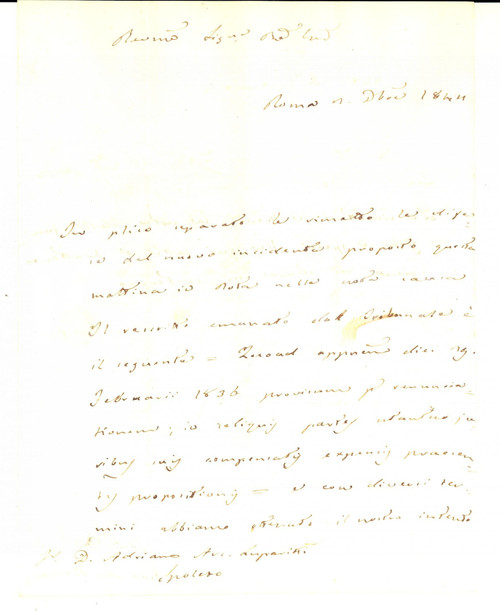 Roma 2. Dbre 1844
In plico separato le rimetto le dife-
se del nuovo incidente proposto questa
mattina in Rota nella nota causa
Il rescritto emanato dal Tribunale è
il seguente = Quoad diei 29.
Februarii 1836 provisum p. renuncia-
tionem; in reliquis partes utantur ju
ribus suis compensatis expensis praesen-
tis propositionis = e con diversi ter-
mini abbiamo ottenuto il nostro intento
D. Adriano
Spoleto